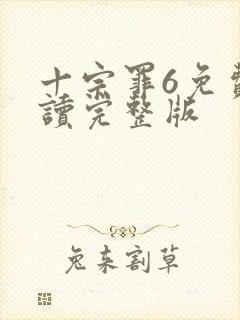 十宗罪6免費
讀完整版
兔来割草